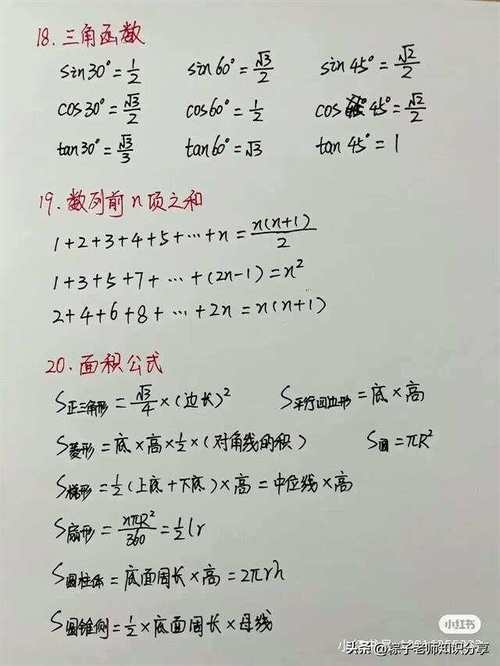 18. 三角函数
sin30°=1/2 sin60°=√3/2 sin45°=√2/2
cos30°=√3/2 cos60°=1/2 cos45°=√2/2
tan30°=√3/3 tan60°=√3 tan45°=1
19. 数列前n项之和
1+2+3+4+5+…+n=n(n+1)/2
1+3+5+7+…+(2n-1)=n²
2+4+6+8+…+2n=n(n+1)
20. 面积公式
S正三角形=√3/4×(边长)² S平行四边形=底×高
S菱形=底×高×1/2×(对角线的积) S圆=πR²
S梯形=1/2(上底+下底)×高=中位线×高
S扇形=nπR²/360=1/2lr
S圆柱体=底面周长×高=2πrh
S圆锥侧=1/2×底面周长×母线
小红书
头条@粽子老师知识分享